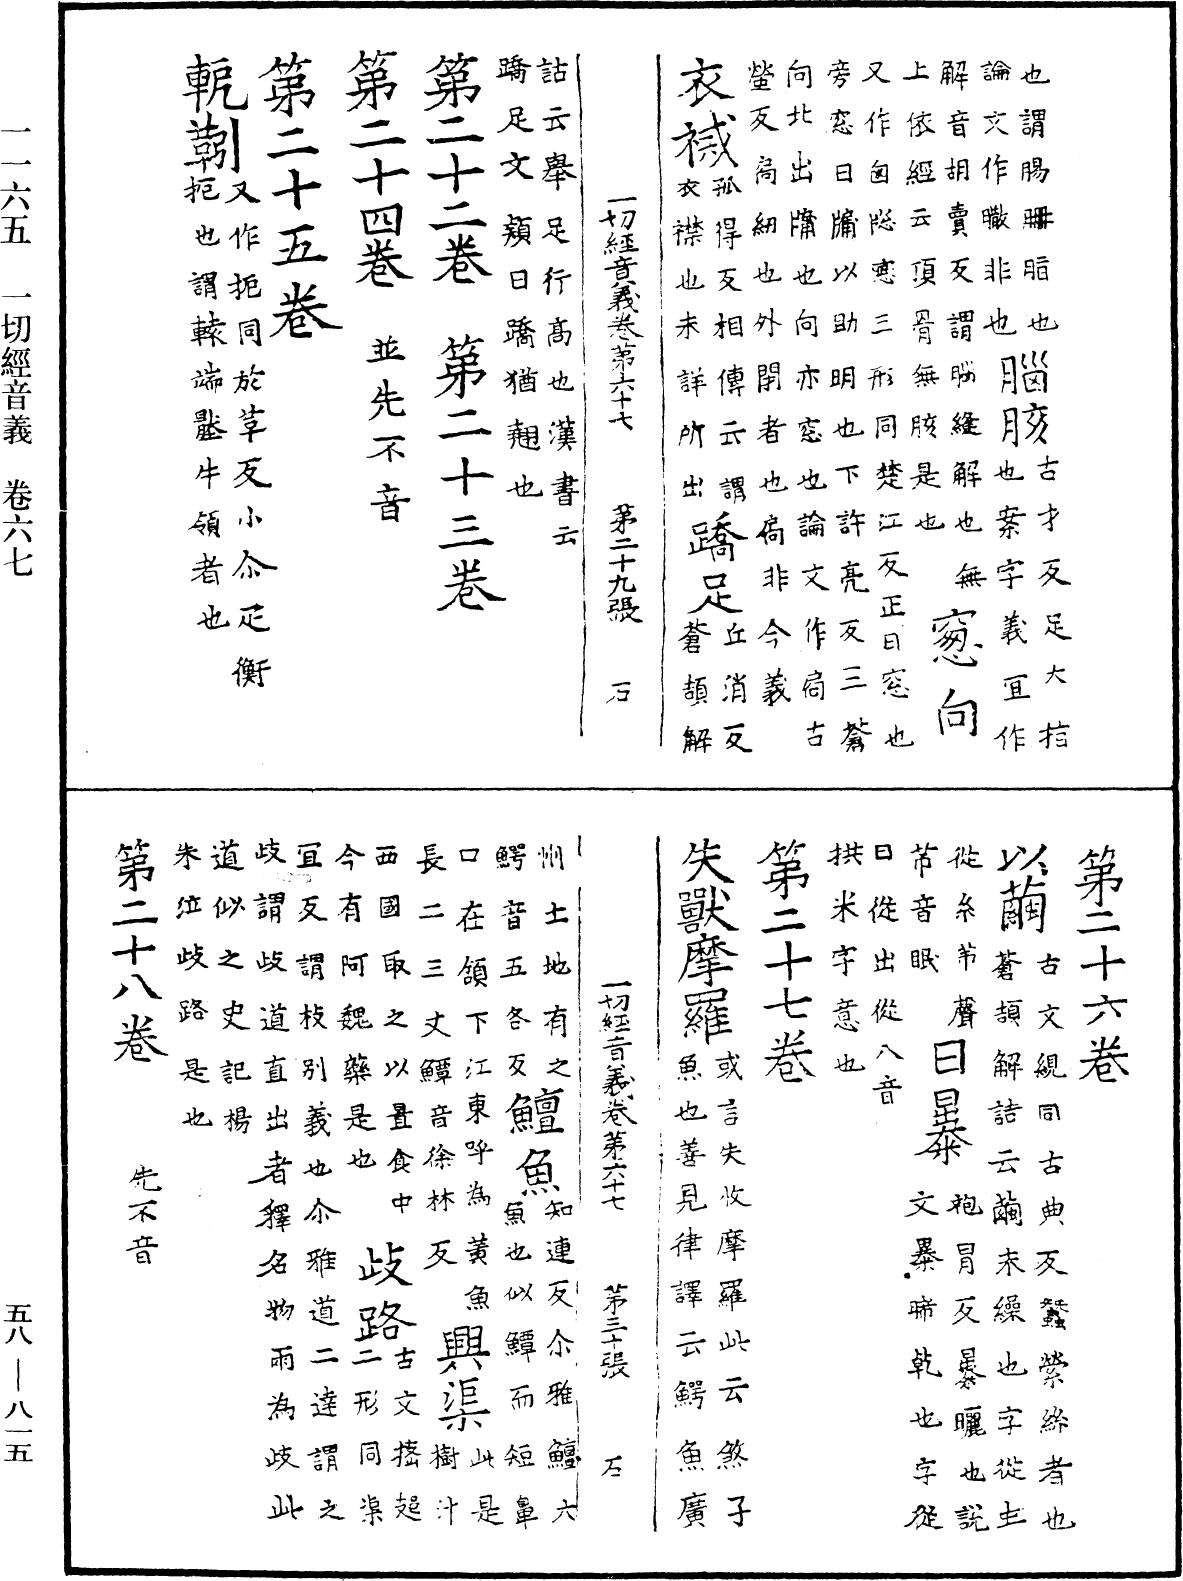 也謂腸𦙱脂也腦胲古才反足大指
論文作䐈非也也案字義宜作
解音胡賣反謂腦縫解也無
上依經云頂骨無胲是也窻向
又作囱𥦗窓三形同楚江反正曰窓也
旁窓曰牖以助明也下許亮反三蒼
向北出牖也向亦窓也論文作扃古
螢反扃紐也外閉者也扃非今義
衣裓孤得反相傳云謂蹻足丘消反
衣襟也未詳所出蒼頡解
一切經音義卷第六十七 第二十九張 石
詁云舉足行高也漢書云
蹻足文頴曰蹻猶翹也
第二十二卷 第二十三卷
第二十四卷 並先不音
第二十五卷
軛䩭又作扼同於革反小尒疋衡
扼也謂轅端壓牛領者也
第二十六卷
以繭古文絸同古典反蠶縈絲者也
蒼頡解詁云繭未繰也字從虫
從糸芇聲曰㬥袍冒反㬥曬也說
芇音眠文㬥晞乾也字從
日從出從八音
拱米字意也
第二十七卷
失獸摩羅或言失收摩羅此云煞子
魚也善見律譯云鰐魚廣
一切經音義卷第六十七 第三十張 石
州土地有之鱣魚知連反尒雅鱣六
鰐音五各反魚也似鱏而短鼻
口在頷下江東呼為黃魚興渠此是
長二三丈鱏音徐林反樹汁
西國取之以置食中歧路古文㩽𧺆
今有阿魏藥是也二形同渠
宜反謂枝別義也尒雅道二達謂之
歧謂歧道直出者釋名物兩為歧此
道似之史記楊
朱泣歧路是也
第二十八卷 先不音
一一六五 一切經音義 卷六七
五八—八一五